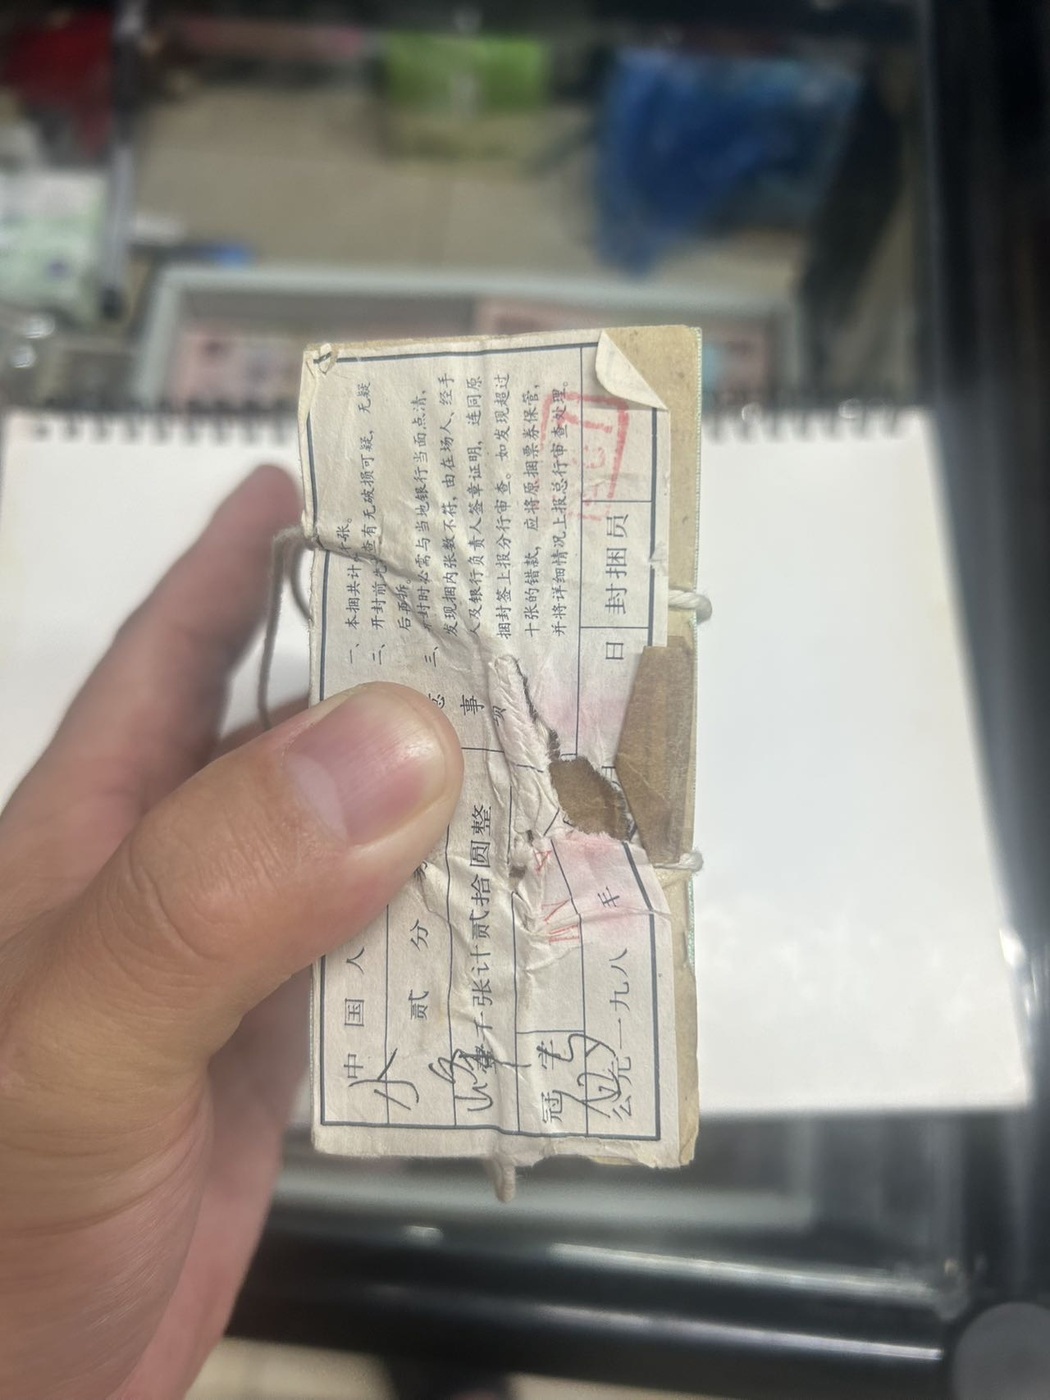 中国人
贰分
张计贰拾圆整
冠
公元一九八
年
日
封捆员
事
一、本捆共计
张。
二、开封前
查有无破损可疑，无疑
后再拆
三、
封时必需与当地银行当面点清，
发现捆内张数不符，由在场人、经手
人及银行负责人签章证明，连同原
捆封签上报分行审查。如发现超过
十张的错款，应将原捆票券保管，
并将详细情况上报总行审查处理。